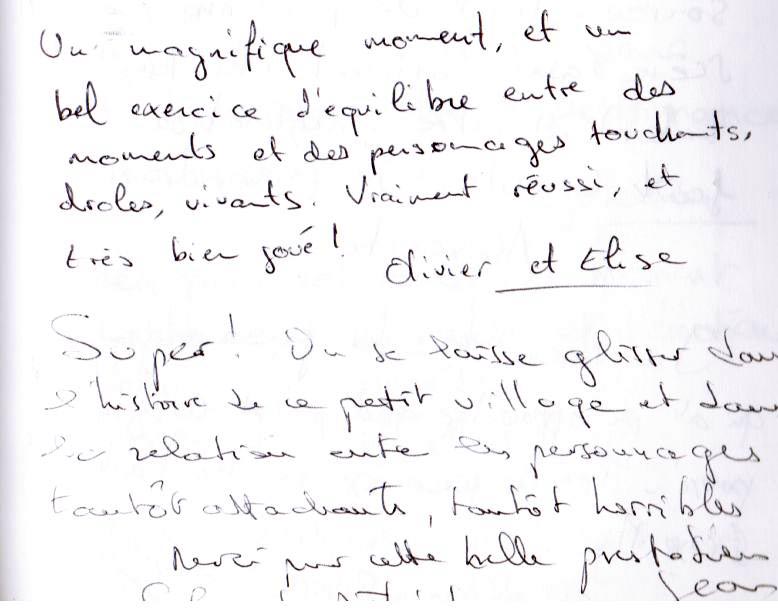 Un magnifique moment, et un
bel exercice d'équilibre entre des
moments et des personnages touchants,
droles, vivants. Vraiment réussi, et
très bien joué!
Olivier et Elise
Super! On se laisse glisser dans
l'histoire de ce petit village et dans
la relation entre les personnages
tantôt attachants, tantôt horribles
Merci pour cette belle prestation
Jean